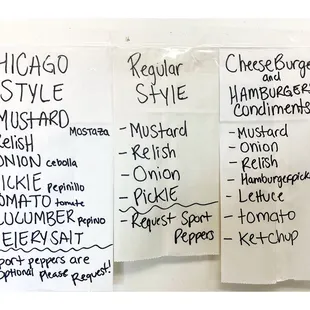 HICAGO
STYLE
MUSTARD MOSTAZA
RELISH
ONION cebolla
ICKLE pepinillo
TOMATO tomate
CUCUMBER pepino
CELERY SALT
port peppers are
optional please Request!
Regular
STYLE
- Mustard
- Relish
- Onion
- PICKLE
- Request Sport
Peppers
CheeseBurge
and
HAMBURGER
Condiments
- Mustard
- Onion
- Relish
- Hamburgerpick
- Lettuce
- tomato
- Ketchup